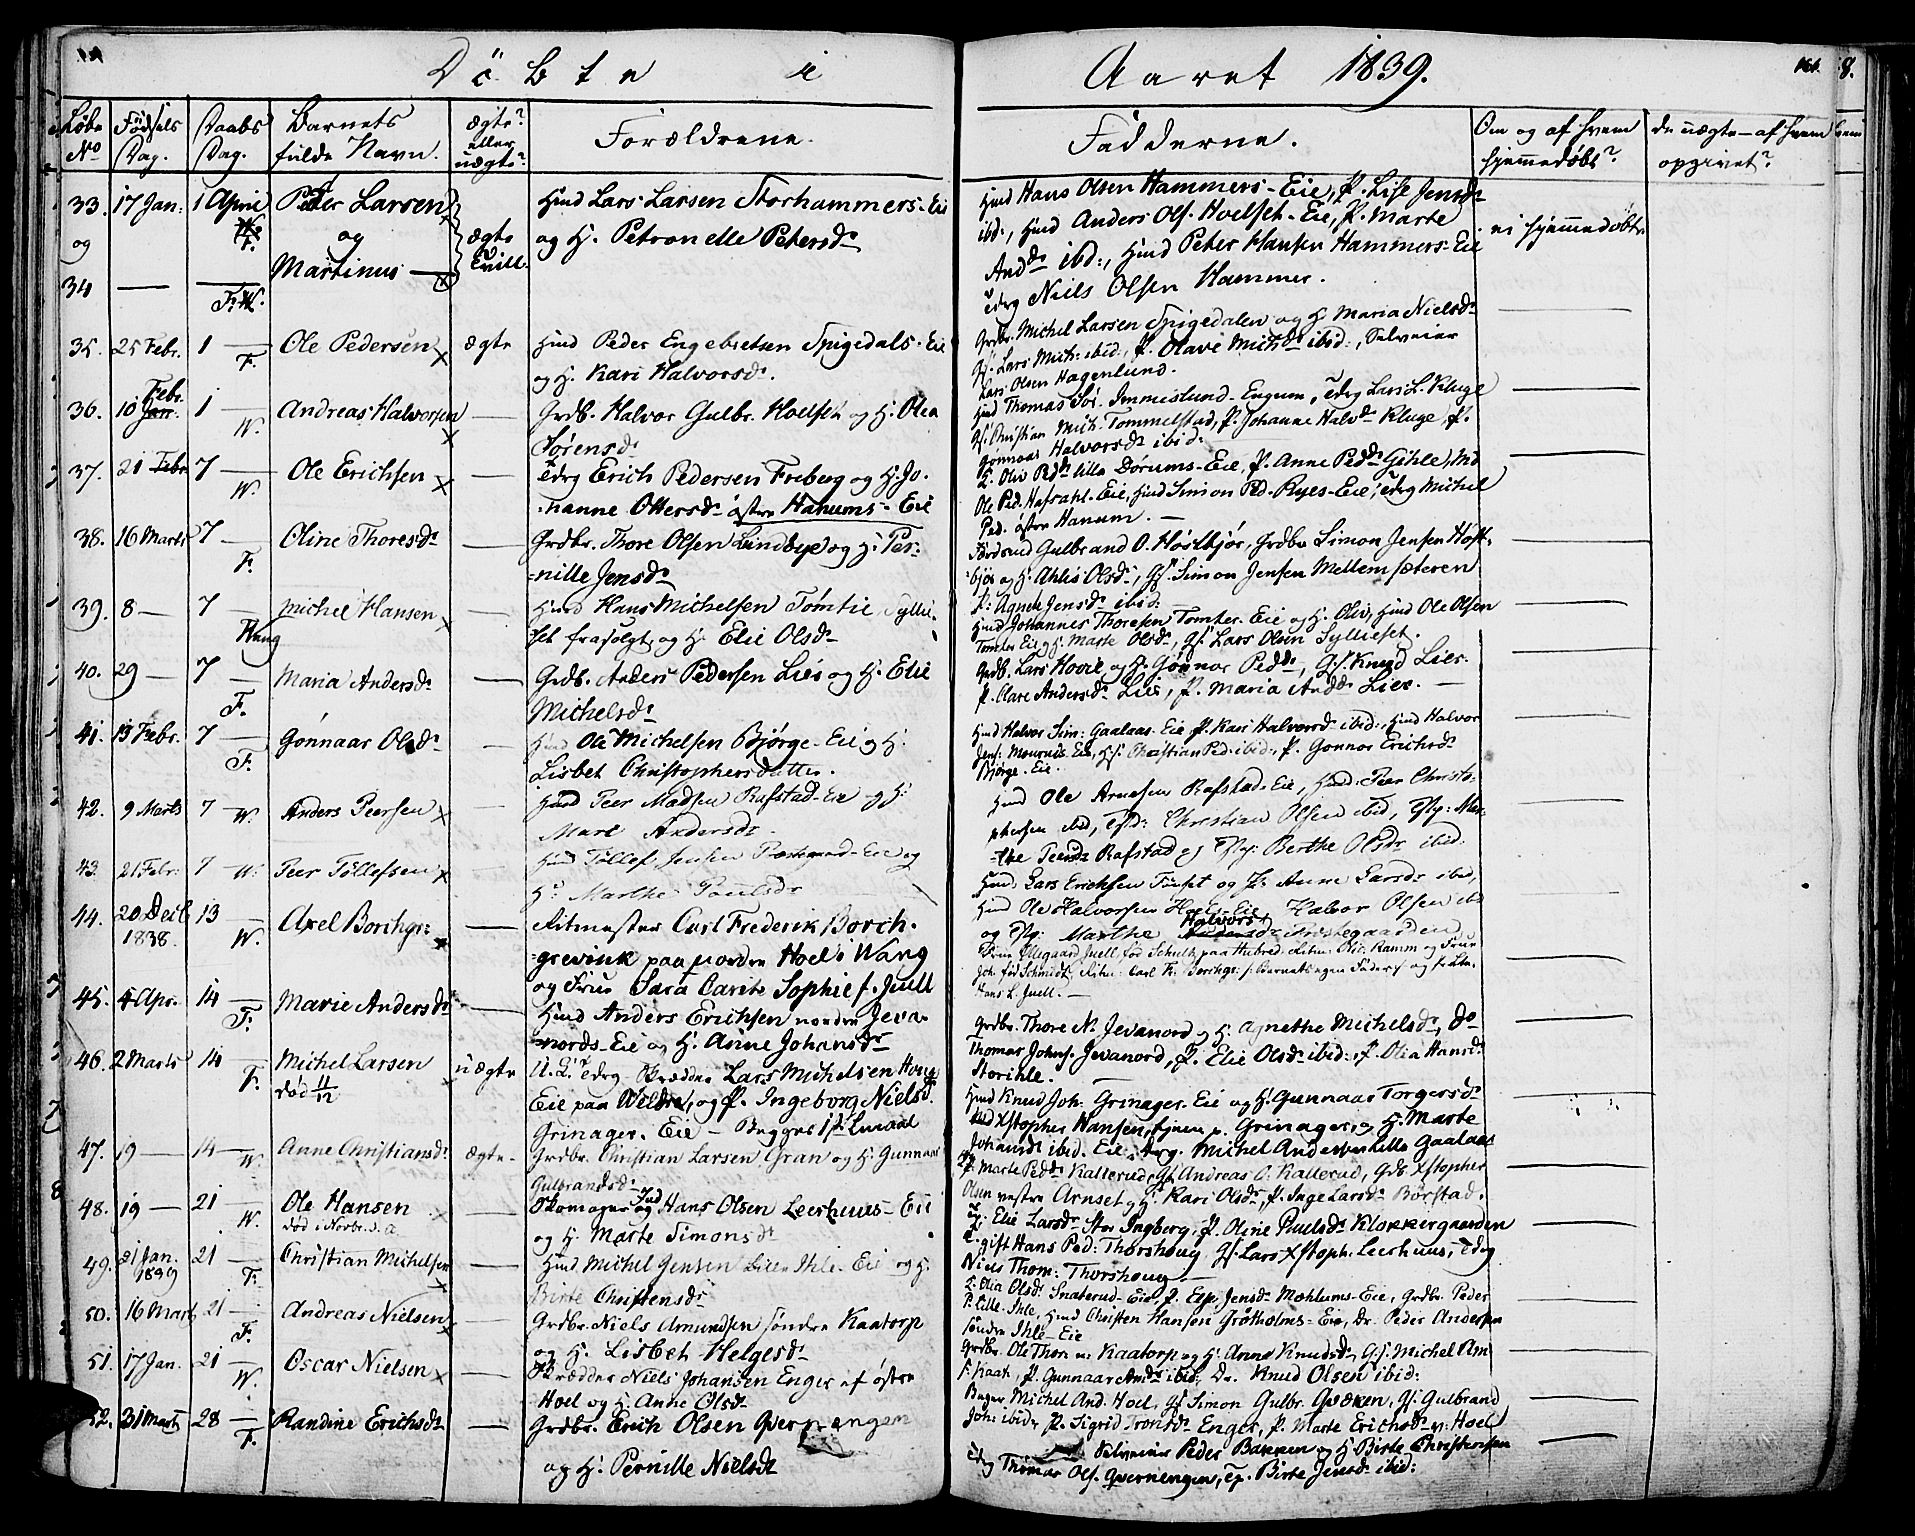 Döbte i Aaret 1839.
Löbe No Fødsels Dag. Daabs Dag. Barnets fulde Navn. ægte? eller uægte? Forældrene. Fadderne. Om og af hvem hjemmedøbt? De uægte – af hvem opgivet?
33. 17 Jan: 1 April Peder Larsen Huusd Lars Larsen Storhammers-Eie
og og ægte og H. Petronelle Petersdr
34 — F. Martinus — Tvill.
Huusd Hans Olsen Hammers-Eie, P. Lise Jensdr
ibd:, Huusd Anders Ols. Hoelset-Eie, P. Marte
Anddr ibd:, Huusd Peter Hansen Hammers-Eie
Niels Olsen Hammer.
35. 25 Febr. 1 — F. Ole Pedersen ægte Huusd Peder Engebretsen Spigdals-Eie
og H. Kari Halvorsdr.
Grdbr. Michel Larsen Spigedalen og H. Maria Nielsdr
Gs. Lars Mich: ibid:, P. Olave Michdr ibid:, Selveier
Lars Olsen Hagenlund.
36. 10 Febr. 1 — W. Andreas Halvorsen — Grdb. Halvor Gulbr. Hoelset og H. Olea
Sørensdr
Thomas Sør. Immeslund-Engum, Lars L. Kluge
Gs. Christian Mich. Tommelstad, P. Johanne Halvdr Kluge, P.
Gønnaar Halvorsdr ibid:
37. 21 Febr 7 — W. Ole Erichsen — Erich Pedersen Freberg og H. Jo-
hanne Ottersdr østre Hanums-Eie
Oliv Peddr lille Dørums-Eie, P. Anne Peddr Gihle,
Ole Ped. Hafsahl-Eie, Huusd Simon Ped. Ryes-Eie, Michel
Ped. østre Hanum. —
38. 16 Marts 7 — F. Oline Thoresdr — Grdbr. Thore Olsen Lindbye og H. Per-
nille Jensdr
Gulbrand O. Høstbjør, Grdbr Simon Jensen Høst-
bjør og H. Ahlis Olsdr, Gs. Simon Jensen Mellemsæteren
P. Agnete Jensdr ibid:
39. 8 — 7 — Michel Hansen — Huusd Hans Michelsen Tomtie
og H. Elie Olsdr
Huusd Johannes Thoresen Tomter-Eie og H. Oliv, Huusd Ole Olsen
Tomter Eie og H. Marte Olsdr, Gs. Lars Olsen Syllieset.
40. 29 — 7 — F. Maria Andersdr — Grdb. Anders Pedersen Lier og H. Elie
Michelsdr
Grdb. Lars Hovie og H. Gønnor Peddr, Gs. Knud Lier.
P. Clare Andersdr Lier, P. Maria Anddr Lier. —
41. 13 Febr. 7 — F. Gønnaar Olsdr — Huusd Ole Michelsen Bjørge-Eie og H.
Lisbet Christophersdatter.
Huusd Halvor Sim: Gaalaas-Eie P. Kari Halvorsdr ibid:, Huusd Halvor
Jens: Mournis-Eie, Gs. Christian Ped: ibid:, P. Gønnor Erichsdr
Bjørge-Eie.
42. 9 Marts 7 W. Anders Peersen — Huusd Peer Madsen Rafstad-Eie og H.
Mari Andersdr.
Huusd Ole Arnesen Rafstad-Eie, Huusd: Peer Christo-
phersen ibid, Christian Olsen ibid, Mar-
the Peersdr Rafstad og Berthe Olsdr ibid.
43. 21 Febr: 7 — W. Peer Tøllefsen — Huusd Tøllef Jensen Præstgaard-Eie og
H. Marthe Poulsdr
Huusd. Lars Erichsen Finset og P. Anne Larsdr ibid,
Huusd Ole Halvorsen Hoels-Eie Halvor Olsen ibd
og Marthe Halvorsdr Præstegaarden
44. 20 Decb 1838. 13 — W. Axel Borchgr: — Ritmester Carl Frederik Borch-
grevink paa nordre Hoel i Wang
og Frue Sara Carete Sophie f. Juell
Frue Ollegaard Juell, fød Schultz paa Hubred, Ritm: Ramm og Frue
Joh. fød Schmidt, Ritm: Carl Fr. Borchgr: / Barnets egen Fader / og
Hans L. Juell. —
45. 4 Apr. 14 — F. Marie Andersdr — Huusd Anders Erichsen nordre Jeva-
nords-Eie og H. Anne Johansdr
Grdbr. Thore N. Jevanord og H. Agnethe Michelsdr, Do
Thomas Johns. Jevanord, P. Elie Olsdr ibid:, P. Olia Hansdr
Storihle.
46. 2 Marts 14 — F. Michel Larsen uægte Skrædder Lars Michelsen
død 11/12 Eie paa Weldre, og P. Ingeborg Nielsdr
Grinager-Eie – Begges 1ste Leiermaal
Huusd Knud Joh. Grinager-Eie og H. Gunnaar Torgersdr
Xstopher Hansen, hjem. p. Grinager, og H. Marte
Johansdr ibid. Eie, Michel Andersen Lille Gaalaas
47. 19 — 14 — W. Anne Christiansdr ægte Grdbr. Christian Larsen Gran og H. Gunnaar
Gulbrandsdr
P. Marte Peddr Kallerud, Gs. Andreas O. Kallerud, Grdb. Xstopher
Olsen vestre Arnset og H. Kari Olsdr, P. Inge Larsdr Børstad.
48. 19 — 21 — W. Ole Hansen — Skomager Hans Olsen Leerhuus-Eie
død i Novbr. d. a. og H. Marte Simonsdr
Elie Larsdr Stor Ingberg, P. Oline Paulsdr Klokkergaarden
Ugift Hans Ped: Thorshoug, Gs. Lars Xstoph. Leerhuus,
Niels Thom: Thorshoug —
49. 31 Jan. 1839 21 — F. Christian Michelsen — Huusd Michel Jensen Lille Ihle-Eie og H.
Birte Christensdr
Olia Olsdr Snaterud-Eie, P. Elp. Jensdr Mæhlums-Eie, Grdbr. Peder
P. Lille-Ihle, Huusd Christen Hansen Grøtholms-Eie, Dr. Peder Andersen
søndre Ihle-Eie
50. 16 Marts 21 — F. Andreas Nielsen — Grdbr. Niels Amundsen søndre Kaatorp
og H. Lisbet Helgesdr
Grdbr. Ole Thor: n: Kaatorp og H. Anne Knudsdr, Gs. Michel Am
s: Kaat:, P. Gunnaar Amdr ibid:, Dr. Knud Olsen ibid:
51. 17 Jan. 21 — W. Oscar Nielsen — Skrædder Niels Johansen Enger af østre
Hoel og H. Anne Olsdr
Michel And. Hoel, Gs. Simon Gulbr. Qvæken, Gs. Gulbrand
Joh: ibid, P. Sigrid Ironsdr Enger, P. Marte Erichsdr v: Hoel
52. 31 Marts 28 — F. Randine Erichsdr — Grdbr. Erich Olsen Qvernengen
og H. Pernille Nielsdr
Selveier Peder Bakken og H. Birte Christensen
Thomas Ols. Qvernengen, Birte Jensdr ibid: